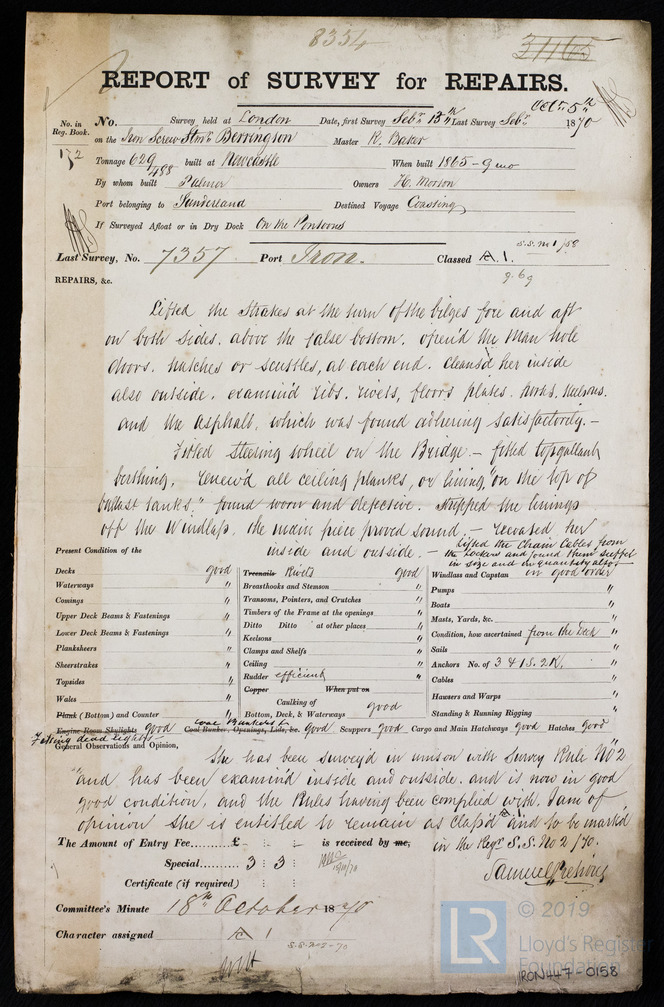 8334
31165
REPORT of SURVEY for REPAIRS.
No. in Reg. Book. No. Survey held at London Date, first Survey Sebr 13th Last Survey Sebr Octr 5th 1870
172 on the Iron Screw Stmr Berrington Master R. Baker
Tonnage 629/488 built at Newcastle When built 1865-9mo
By whom built Palmer Owners H. Morton
Port belonging to Sunderland Destined Voyage Coasting
If Surveyed Afloat or in Dry Dock On the Pontoons
S.S. No 1/68
Last Survey, No. 7357 Port Iron. Classed A.1.
9.69
REPAIRS, &c.
Lifted the Strakes at the turn of the bilges fore and aft
on both sides. above the false bottom. open'd the Man hole
doors. hatches or scuttles, at each end. cleans'd her inside
also outside. examin'd ribs. rivets, floors plates. keelsons.
and the Asphalt, which was found adhering satisfactorily.-
Fitted steering wheel on the Bridge.- fitted topgallant
berthing, renew'd all ceiling planks, or lining, "on the top of
ballast tanks." found worn and defective. Stripped the linings
off the Windlass, the main piece proved sound, - recoated her
inside and outside. - Lifted the Chain Cables from
the Lockers and found them suffict
in size and in quantity also
in good order
Present Condition of the
Decks good
Waterways "
Comings "
Upper Deck Beams & Fastenings "
Lower Deck Beams & Fastenings "
Planksheers "
Sheerstrakes "
Topsides "
Wales "
Plank (Bottom) and Counter "
Treenails Rivets good
Breasthooks and Stemson "
Transoms, Pointers, and Crutches "
Timbers of the Frame at the openings "
Ditto Ditto at other places "
Keelsons "
Clamps and Shelfs "
Ceiling "
Rudder efficient "
Copper When put on
Caulking of
Bottom, Deck, & Waterways good
Windlass and Capstan "
Pumps "
Boats "
Masts, Yards, &c. "
Condition, how ascertained from the Deck "
Sails "
Anchors No. of 3 & 1 S. 2 K. "
Cables "
Hawsers and Warps "
Standing & Running Rigging "
Engine Room Skylights good Coal Bunkers & Coal Bunker, Openings, Lids, &c. good Scuppers good Cargo and Main Hatchways good Hatches good
Fitting dead lights
General Observations and Opinion,
She has been survey'd in unison with Survey Rule No 2
"and has been examin'd inside and outside. and is now in good
good condition, and the Rules having been complied with. I am of
opinion she is entitled to remain as class'd A1 and to be mark'd
in the Regr S.S. No 2/70.
The Amount of Entry Fee £ : : is received by me,
Special 3 : 3 :
Certificate (if required) : :
Samuel
Committee's Minute 18th October 1870
Character assigned A 1
S.S. No 2-70
© 2019
LR
Lloyd's Register
Foundation
IRON447-0158